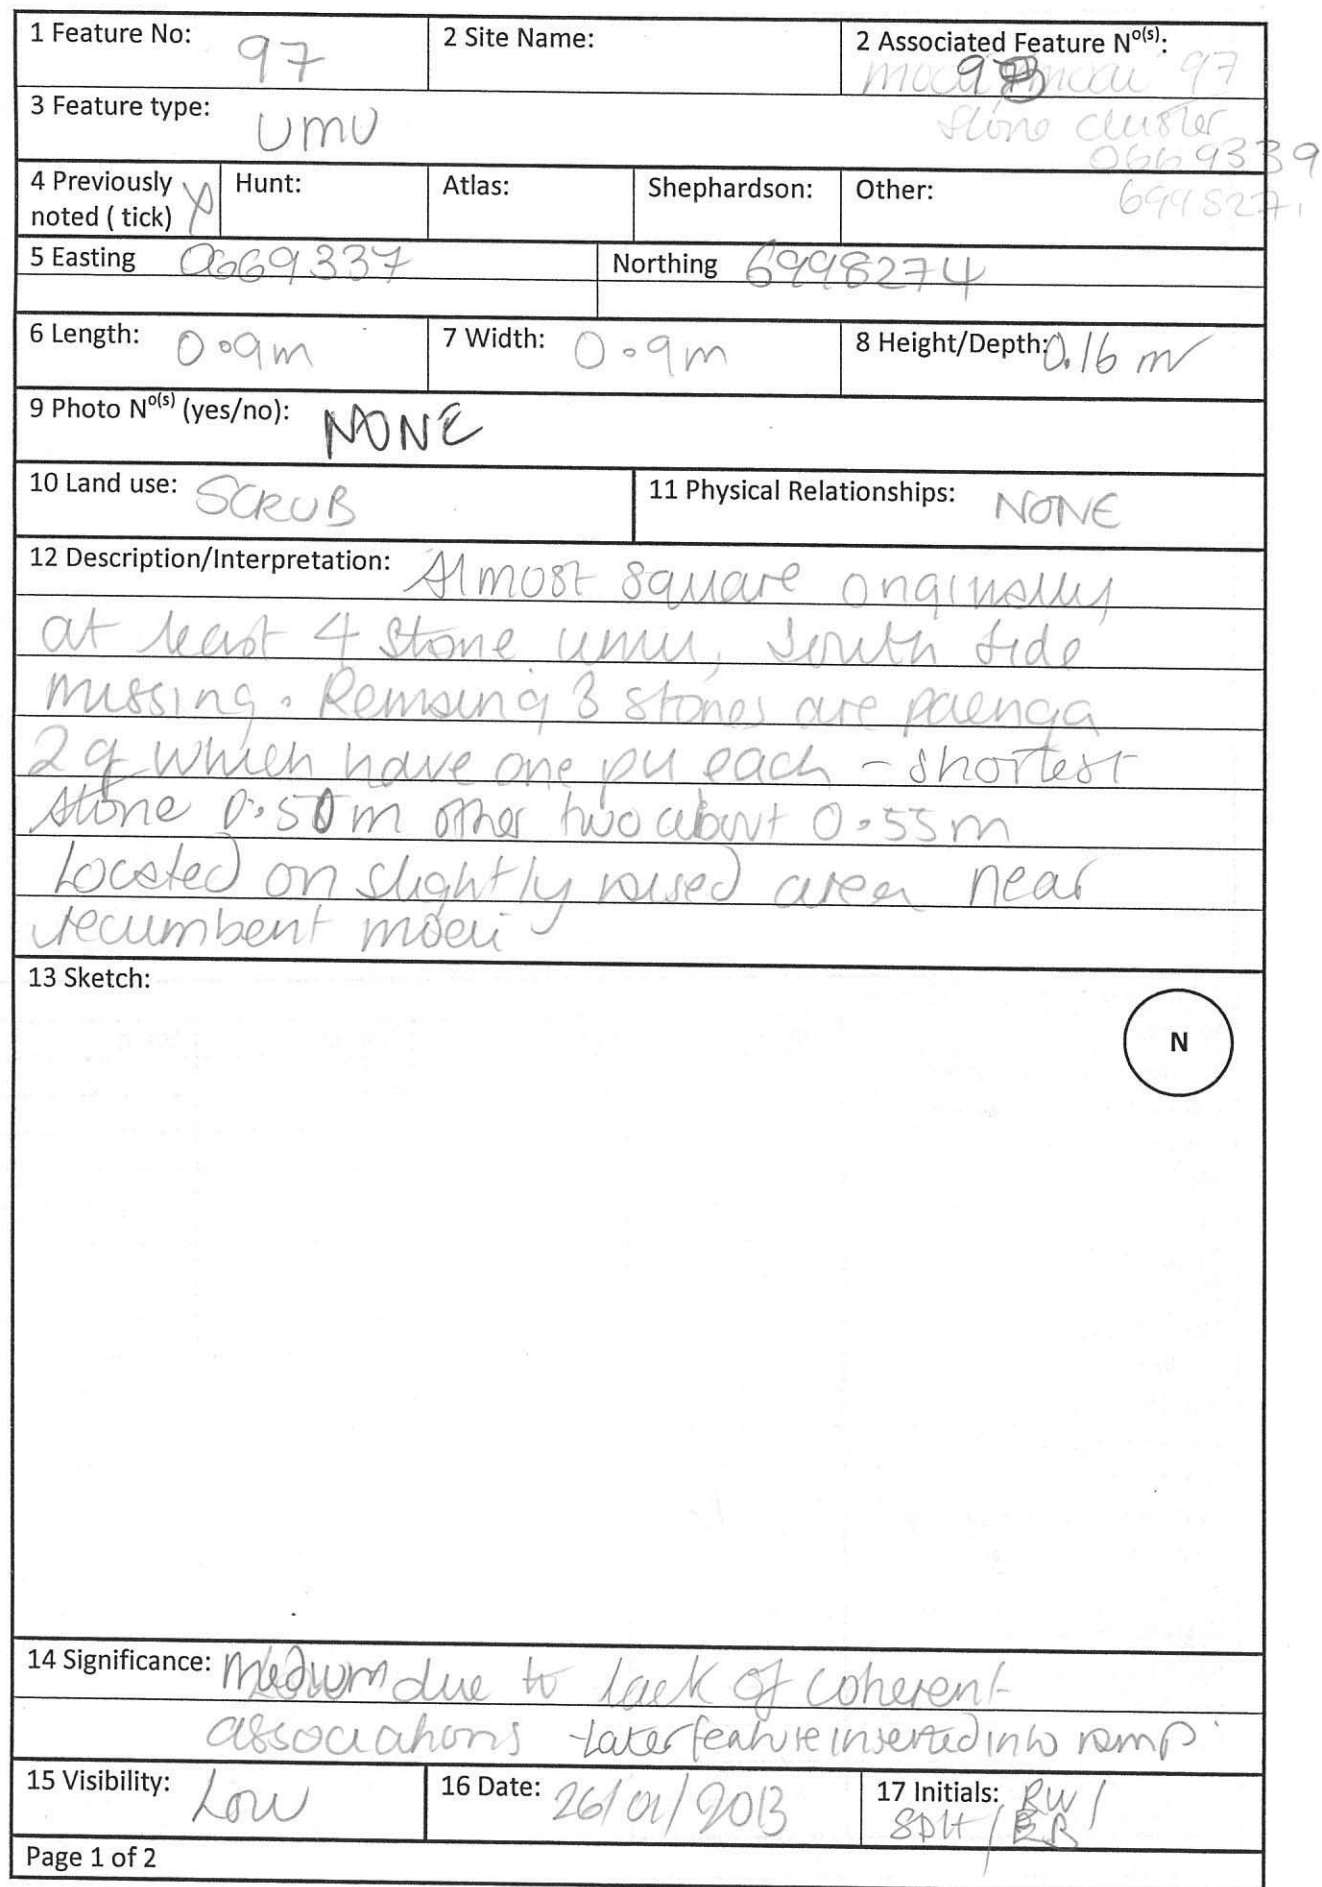 1 Feature No: 97
2 Site Name:
2 Associated Feature No(s): 98
moai 97
stone cluster
0669339
6998271
3 Feature type: UMU
4 Previously noted ( tick) X
Hunt:
Atlas:
Shephardson:
Other:
5 Easting 0669337
Northing 6998274
6 Length: 0.9m
7 Width: 0.9m
8 Height/Depth: 0.16 m
9 Photo No(s) (yes/no): NONE
10 Land use: SCRUB
11 Physical Relationships: NONE
12 Description/Interpretation: Almost square originally
at least 4 stone umu, South side
missing. Remaing 3 stones are paenga
2 of which have one pu each - shortest
stone 0.50m other two about 0.55m
Located on slightly raised area near
recumbent moai
13 Sketch:
N
14 Significance: Medium due to lack of coherent
associations - later feature inserted into ramp
15 Visibility: Low
16 Date: 26/01/2013
17 Initials: RW/
SDH/
Page 1 of 2